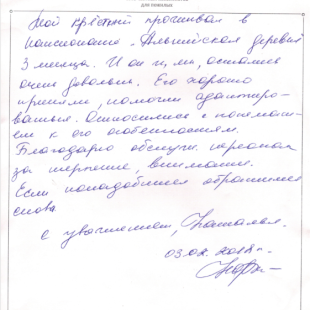 для пожилых
Мой крёстный проживал в
пансионате "Альпийская деревня"
3 месяца. И он и, мы, остались
очень довольны. Его хорошо
приняли, помогли адаптиро-
ваться. Относились с понимани-
ем к его особенностям.
Благодарю обслуж. персонал
за терпение, внимание.
Если понадобится обратимся
снова
с уважением, Наталья.